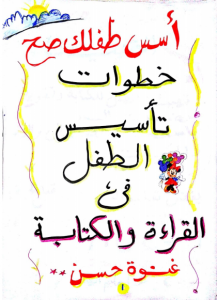 أسس طفلك صح
خطوات
تأسيس
الطفل
في
القراءة والكتابة
غنوة حسن
١